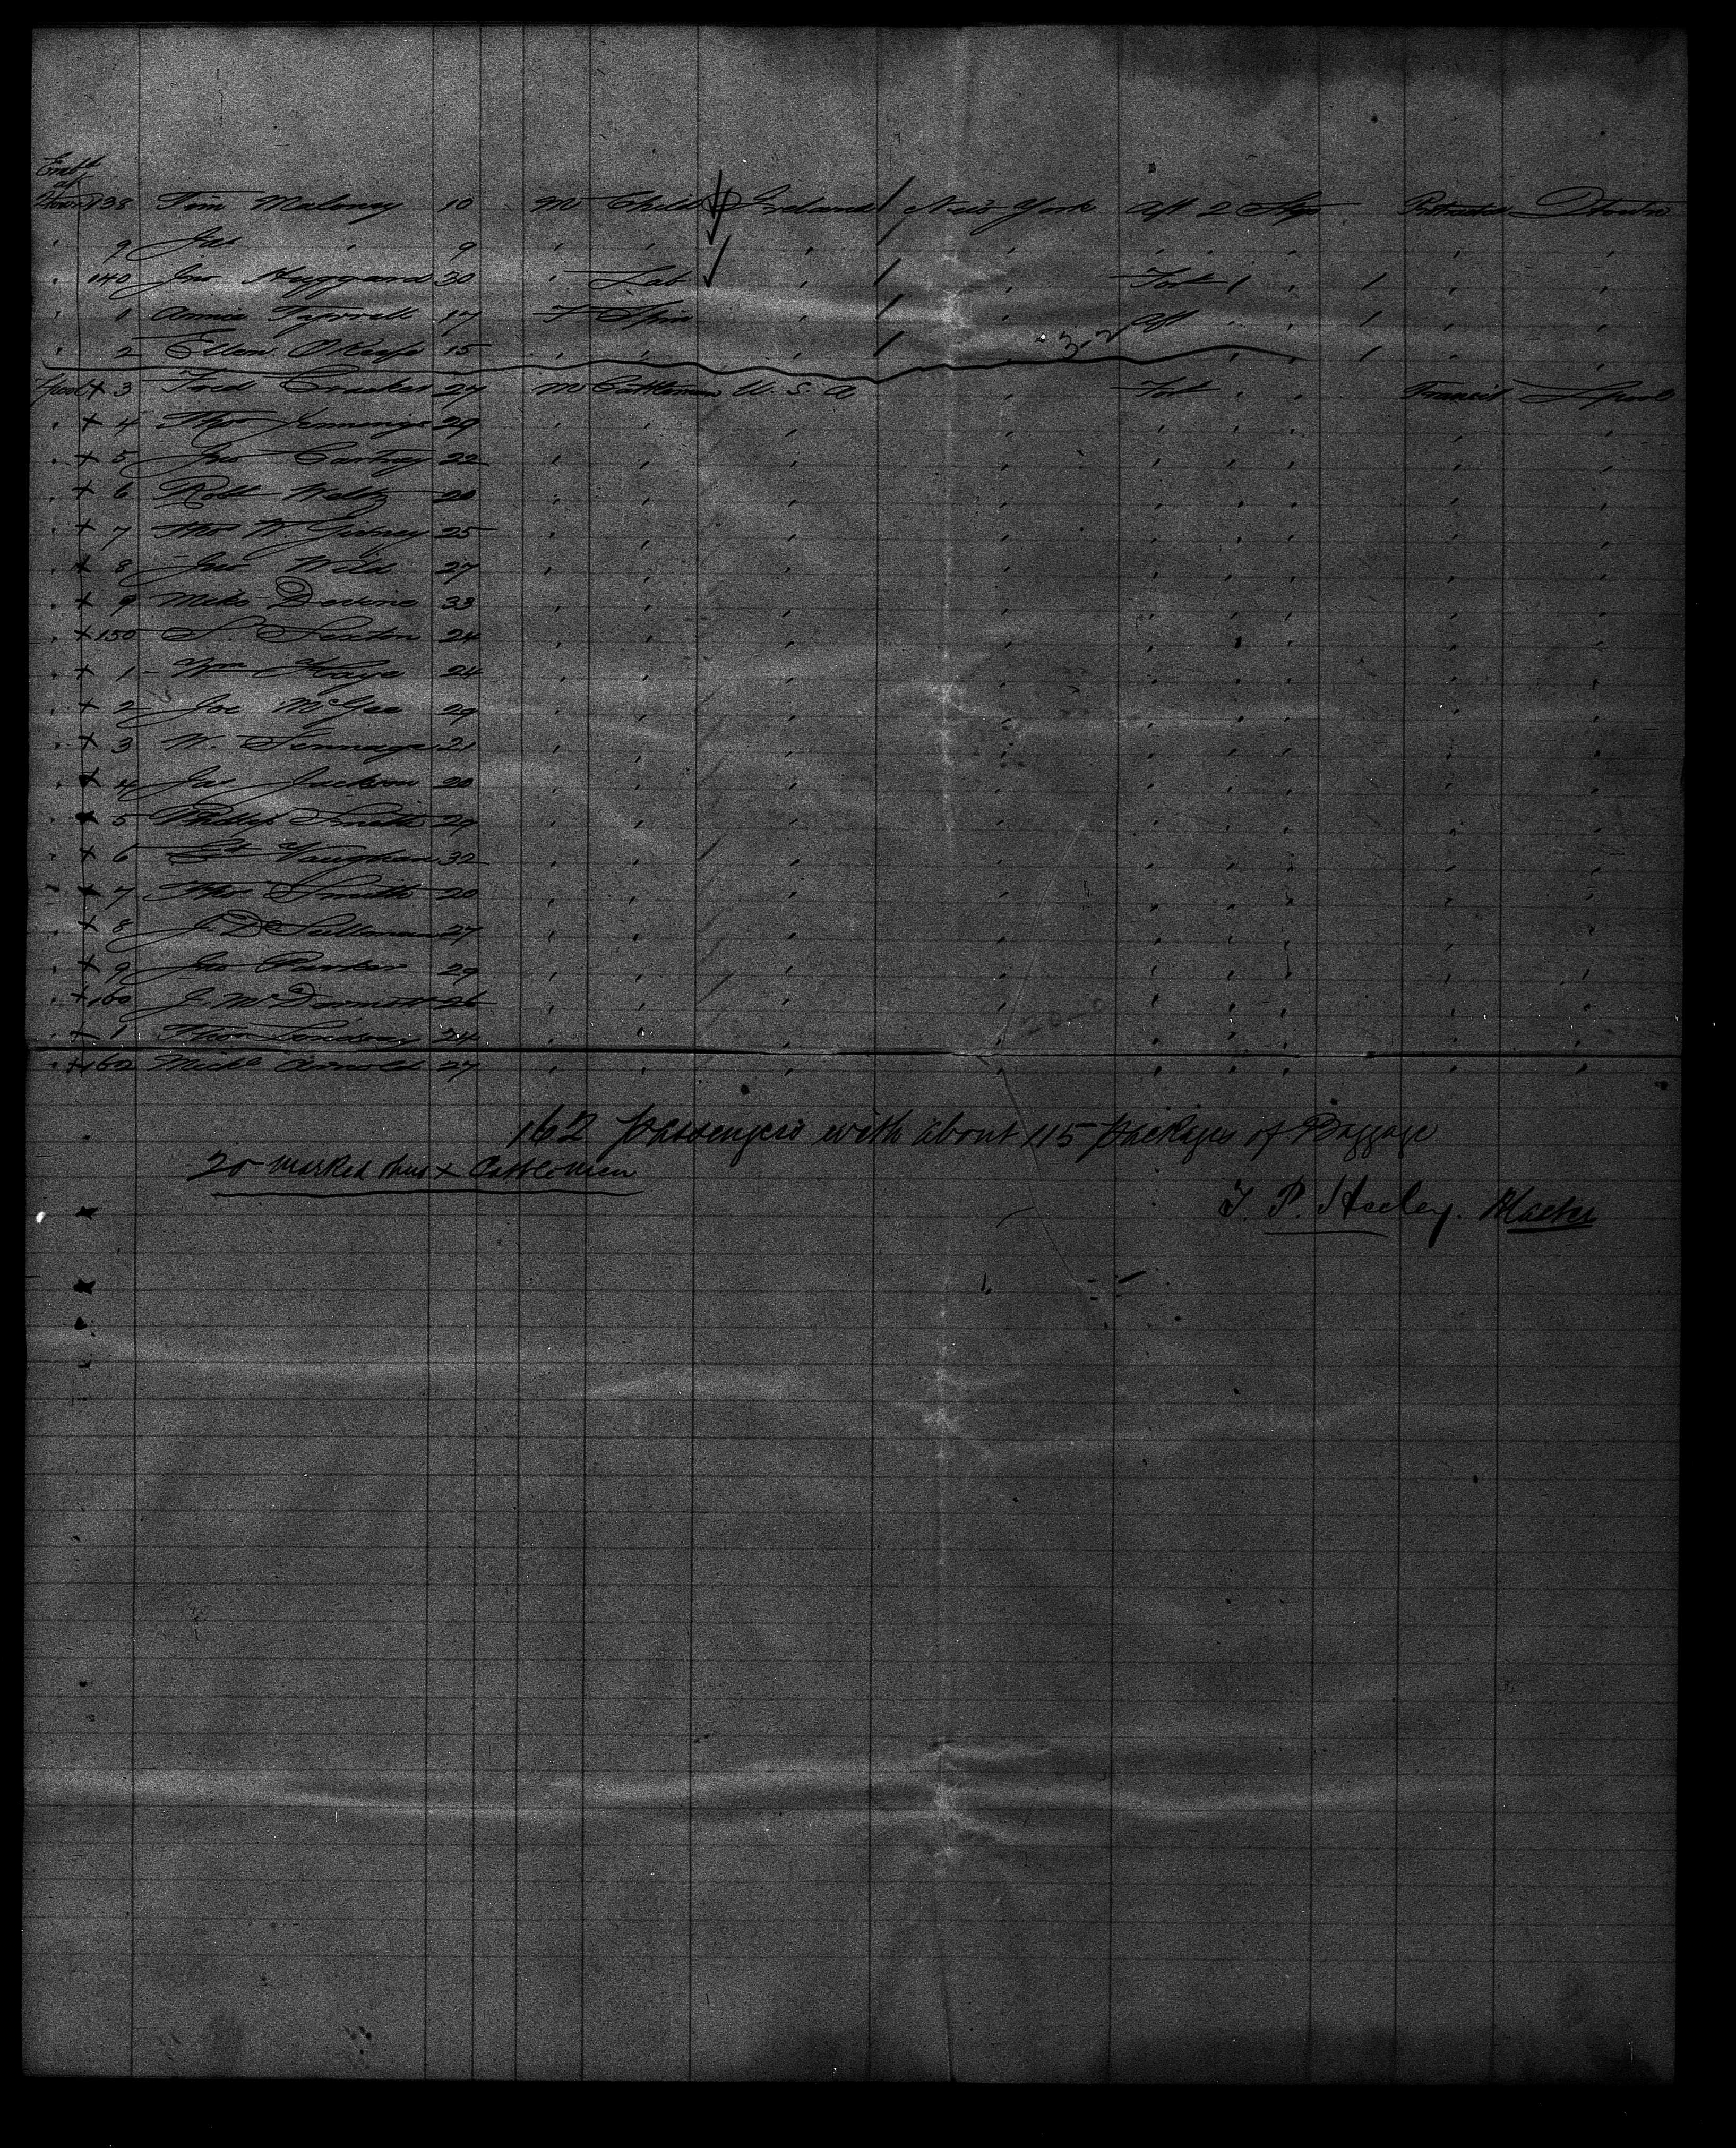 Embd
at
Qtown 138 Tim Maloney 10 M Child Ireland New York Aft 2 Stge Protracted Qtown
" 9 Jas " 9 " " " " " " " " "
" 140 Jno Huggard 30 " Lab " " For 1 " 1 " "
" 1 Annie Tyrrell 17 F Spin " " Aft " " 1 " "
" 2 Ellen O'Keefe 15 " " " " " " 1 " "
Lpool + 3 Fred Crocker 27 M Cattleman U. S. A " For " " Transit Lpool
" + 4 Thos Jennings 29 " " " " " " " " "
" + 5 Jno Cartney 22 " " " " " " " " "
" + 6 Robt Weltz 20 " " " " " " " " "
" + 7 Thos W. 25 " " " " " " " " "
" + 8 Jno Wild 27 " " " " " " " " "
" + 9 Mike Devine 33 " " " " " " " " "
" + 150 S. Sexton 24 " " " " " " " " "
" + 1 Wm Haye 24 " " " " " " " " "
" + 2 Joe McGee 29 " " " " " " " " "
" + 3 W. 21 " " " " " " " " "
" + 4 Jas Jackson 20 " " " " " " " " "
" + 5 Phillip Smith 29 " " " " " " " " "
" + 6 Ed Vaughan 32 " " " " " " " " "
" + 7 Thos Smith 20 " " " " " " " " "
" + 8 J. D. Sullivan 27 " " " " " " " " "
" + 9 Jno Parker 29 " " " " " " " " "
" + 160 J. McDermott 26 " " " " " " " " "
" + 1 Thos 24 " " " " " " " " "
" + 162 Michl Arnold 27 " " " " " " " " "
162 passengers with about 115 packages of Baggage
20 marked thus + Cattlemen
T. P. Heeley. Master